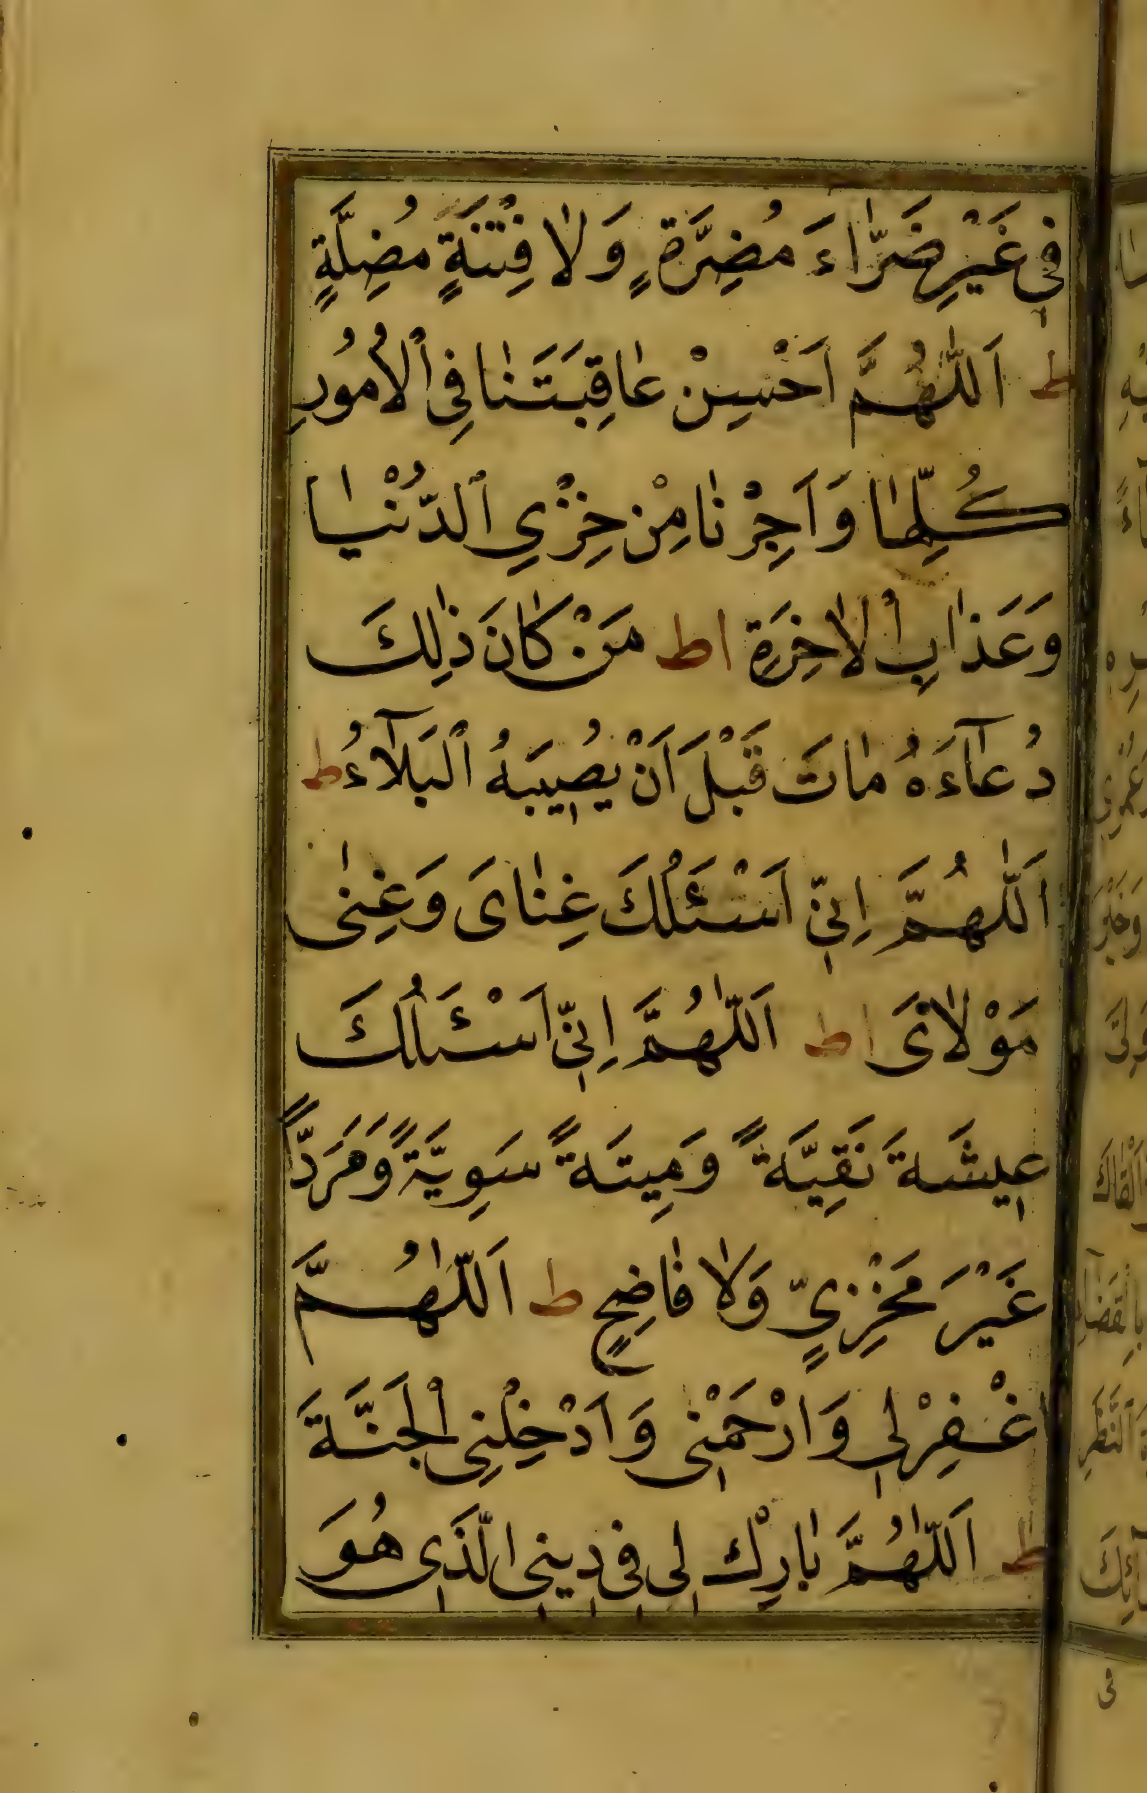 فِى غَيْرِ ضَرَّاءَ مُضِرَّةٍ وَلَا فِتْنَةٍ مُضِلَّةٍ
ط اَللّٰهُمَّ اَحْسِنْ عَاقِبَتَنَا فِى الْاُمُورِ
كُلِّهَا وَاَجِرْنَا مِنْ خِزْىِ الدُّنْيَا
وَعَذَابِ الْاٰخِرَةِ اط مَنْ كَانَ ذٰلِكَ
دُعَآءَهُ مَاتَ قَبْلَ اَنْ يُصِيبَهُ الْبَلَآءُ ط
اَللّٰهُمَّ اِنِّى اَسْئَلُكَ غِنَاىَ وَغِنٰى
مَوْلَاىَ اط اَللّٰهُمَّ اِنِّى اَسْئَلُكَ
عِيشَةَ نَقِيَّةً وَمِيتَةً سَوِيَّةً وَمَرَدًّا
غَيْرَ مَخْزِىٍّ وَلَا فَاضِحٍ ط اَللّٰهُمَّ
اغْفِرْلِى وَارْحَمْنِى وَادْخِلْنِى الْجَنَّةَ
ط اَللّٰهُمَّ بَارِكْ لِى فِى دِينِى الَّذِى هُوَ